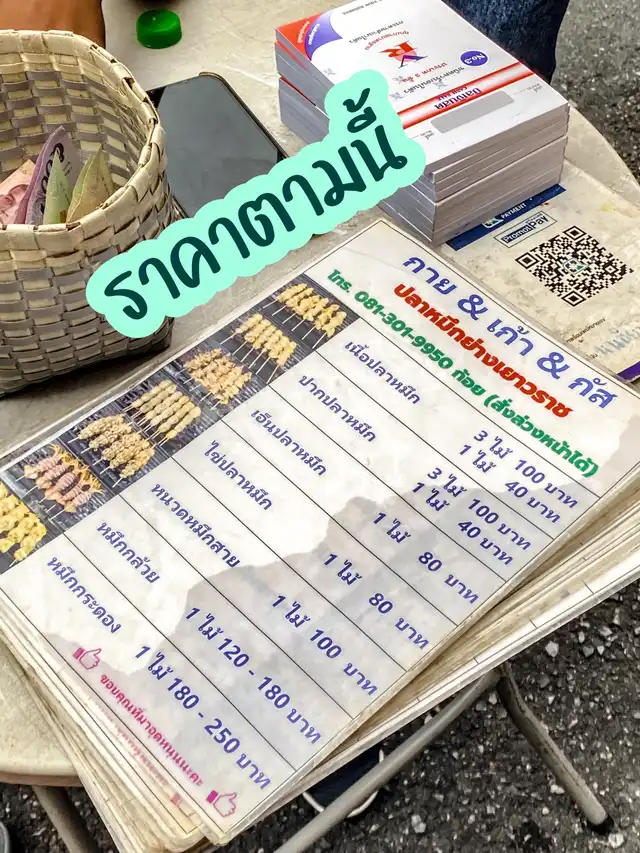 ราคาตามนี้
บิลเงินสด
No.3
PAYMENT
PromptPay
กาย & เก้า & กัส
ปลาหมึกย่างเยาวราช
โทร. 081-301-9950 ก้อย (สั่งล่วงหน้าได้)
เนื้อปลาหมึก 3 ไม้ 100 บาท
1 ไม้ 40 บาท
ปากปลาหมึก 3 ไม้ 100 บาท
1 ไม้ 40 บาท
เอ็นปลาหมึก 1 ไม้ 80 บาท
ไข่ปลาหมึก 1 ไม้ 80 บาท
หนวดหมึกสาย 1 ไม้ 100 บาท
หมึกกล้วย 1 ไม้ 120 - 180 บาท
หมึกกระดอง 1 ไม้ 180 - 250 บาท
ขอบคุณที่มาอุดหนุนนะคะ